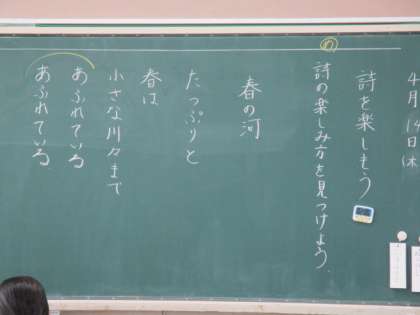 4月14日(木)
詩を楽しもう
め
詩の楽しみ方を見つけよう。
春の河
たっぷりと
春は
小さな川々まで
あふれている
あふれている